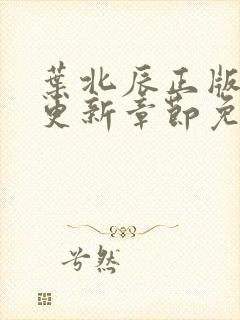 葉北辰正版
更新章節免
兮然